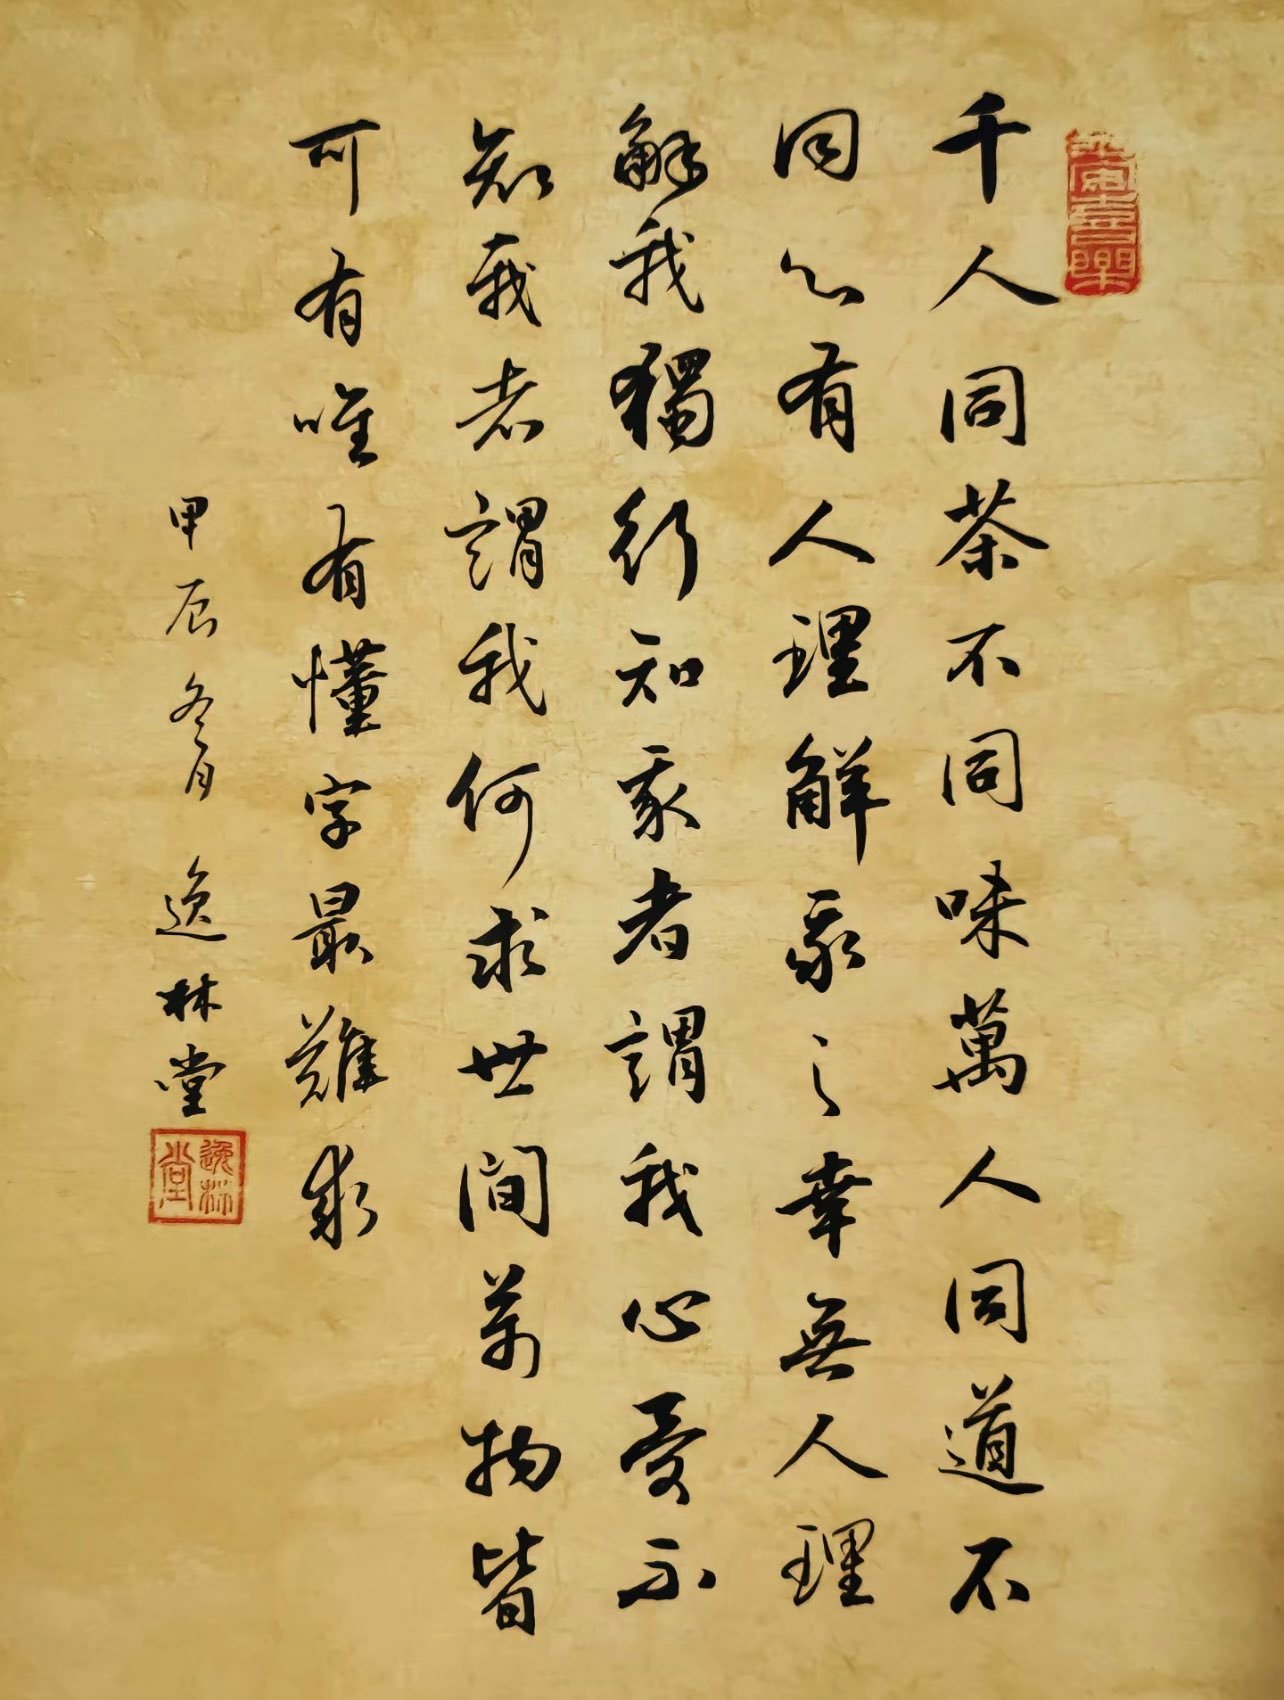 千人同茶不同味萬人同道不
同心有人理解我之幸無人理
解我獨行知我者謂我心憂不
知我者謂我何求世間萬物皆
可有唯有懂字最難求
甲辰冬月逸林堂
逸林堂